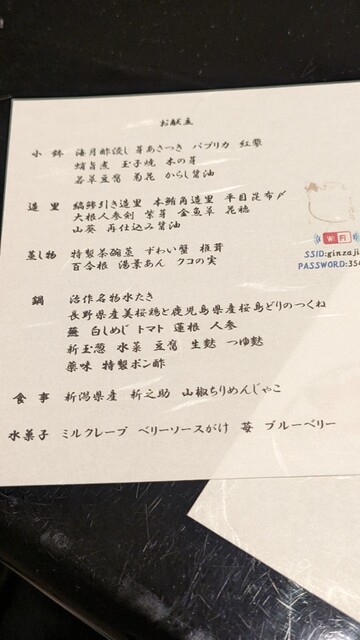 お献立
小鉢 海月酢浸し 芽あさつき パプリカ 紅蓼
蛸旨煮 玉子焼 木の芽
若草豆腐 菊花 からし醤油
造里 縞鯵引き造里 本鮪角造里 平目昆布〆
大根人参剣 紫芽 金魚草 花穂
山葵 再仕込み醤油
蒸し物 特製茶碗蒸 ずわい蟹 椎茸
百合根 湯葉あん クコの実
鍋 治作名物水たき
長野県産美桜鶏と鹿児島県産桜島どりのつくね
蕪 白しめじ トマト 蓮根 人参
新玉葱 水菜 豆腐 生麩 つゆ麩
薬味 特製ポン酢
食事 新潟県産 新之助 山椒ちりめんじゃこ
水菓子 ミルクレープ ベリーソースがけ 苺 ブルーベリー
WiFi
SSID:ginzaji
PASSWORD:354